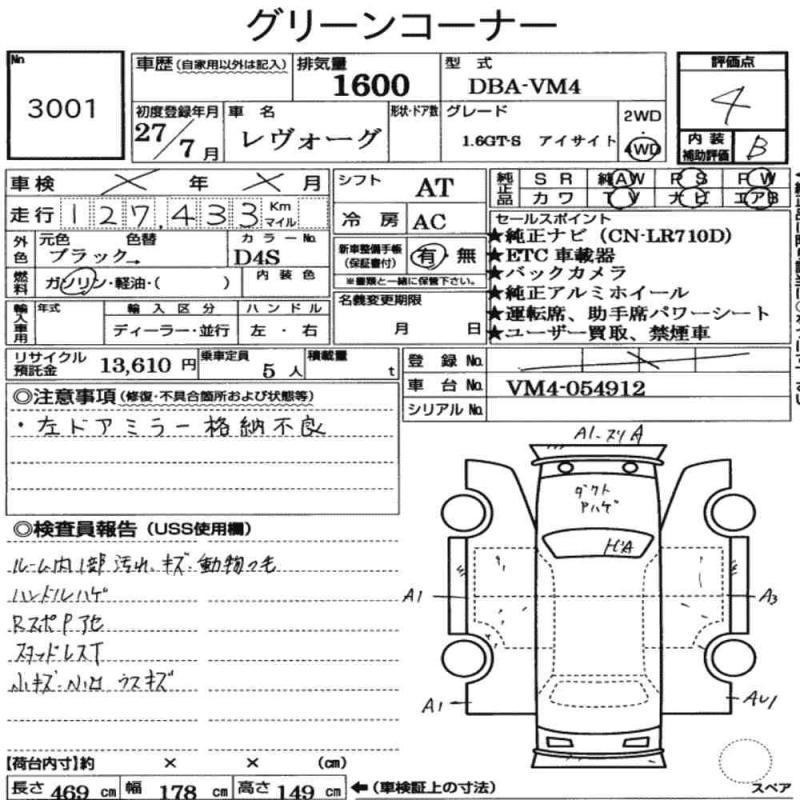 グリーンコーナー
No 3001
車歴(自家用以外は記入)
排気量 1600
型式 DBA-VM4
評価点 4
初度登録年月 27/7月
車名 レヴォーグ
形状・ドア数
グレード 1.6GT-S アイサイト
2WD
4WD
内装補助評価 B
車検 × 年 × 月
シフト AT
純正品 SR 純AW PS PW
カワ TV ナビ エアB
走行 127,433 Km マイル
冷房 AC
セールスポイント
★純正ナビ(CN-LR710D)
★ETC車載器
★バックカメラ
★純正アルミホイール
★運転席、助手席パワーシート
★ユーザー買取、禁煙車
外色 元色 色替 ブラック→
カラーNo. D4S
新車整備手帳(保証書付) 有・無
※書類と一緒に保管下さい。
燃料 ガソリン・軽油・( )
内装色
名義変更期限 月 日
輸入車用 年式 輸入区分 ハンドル
ディーラー・並行 左・右
リサイクル預託金 13,610円
乗車定員 5人
積載量 t
登録No.
車台No. VM4-054912
シリアルNo.
◎注意事項(修復・不具合箇所および状態等)
・左ドアミラー格納不良
◎検査員報告(USS使用欄)
ルーム内1部汚れ、キズ、動物の毛
ハンドルハゲ
RスポPアセ
スタッドレスT
小キズ・小凹 ウスキズ
A1・スリA
ダクト
アハゲ
ヒA
A1
A3
A1
AU1
スペア
【荷台内寸】約 × × (cm)
長さ 469 cm 幅 178 cm 高さ 149 cm ←(車検証上の寸法)